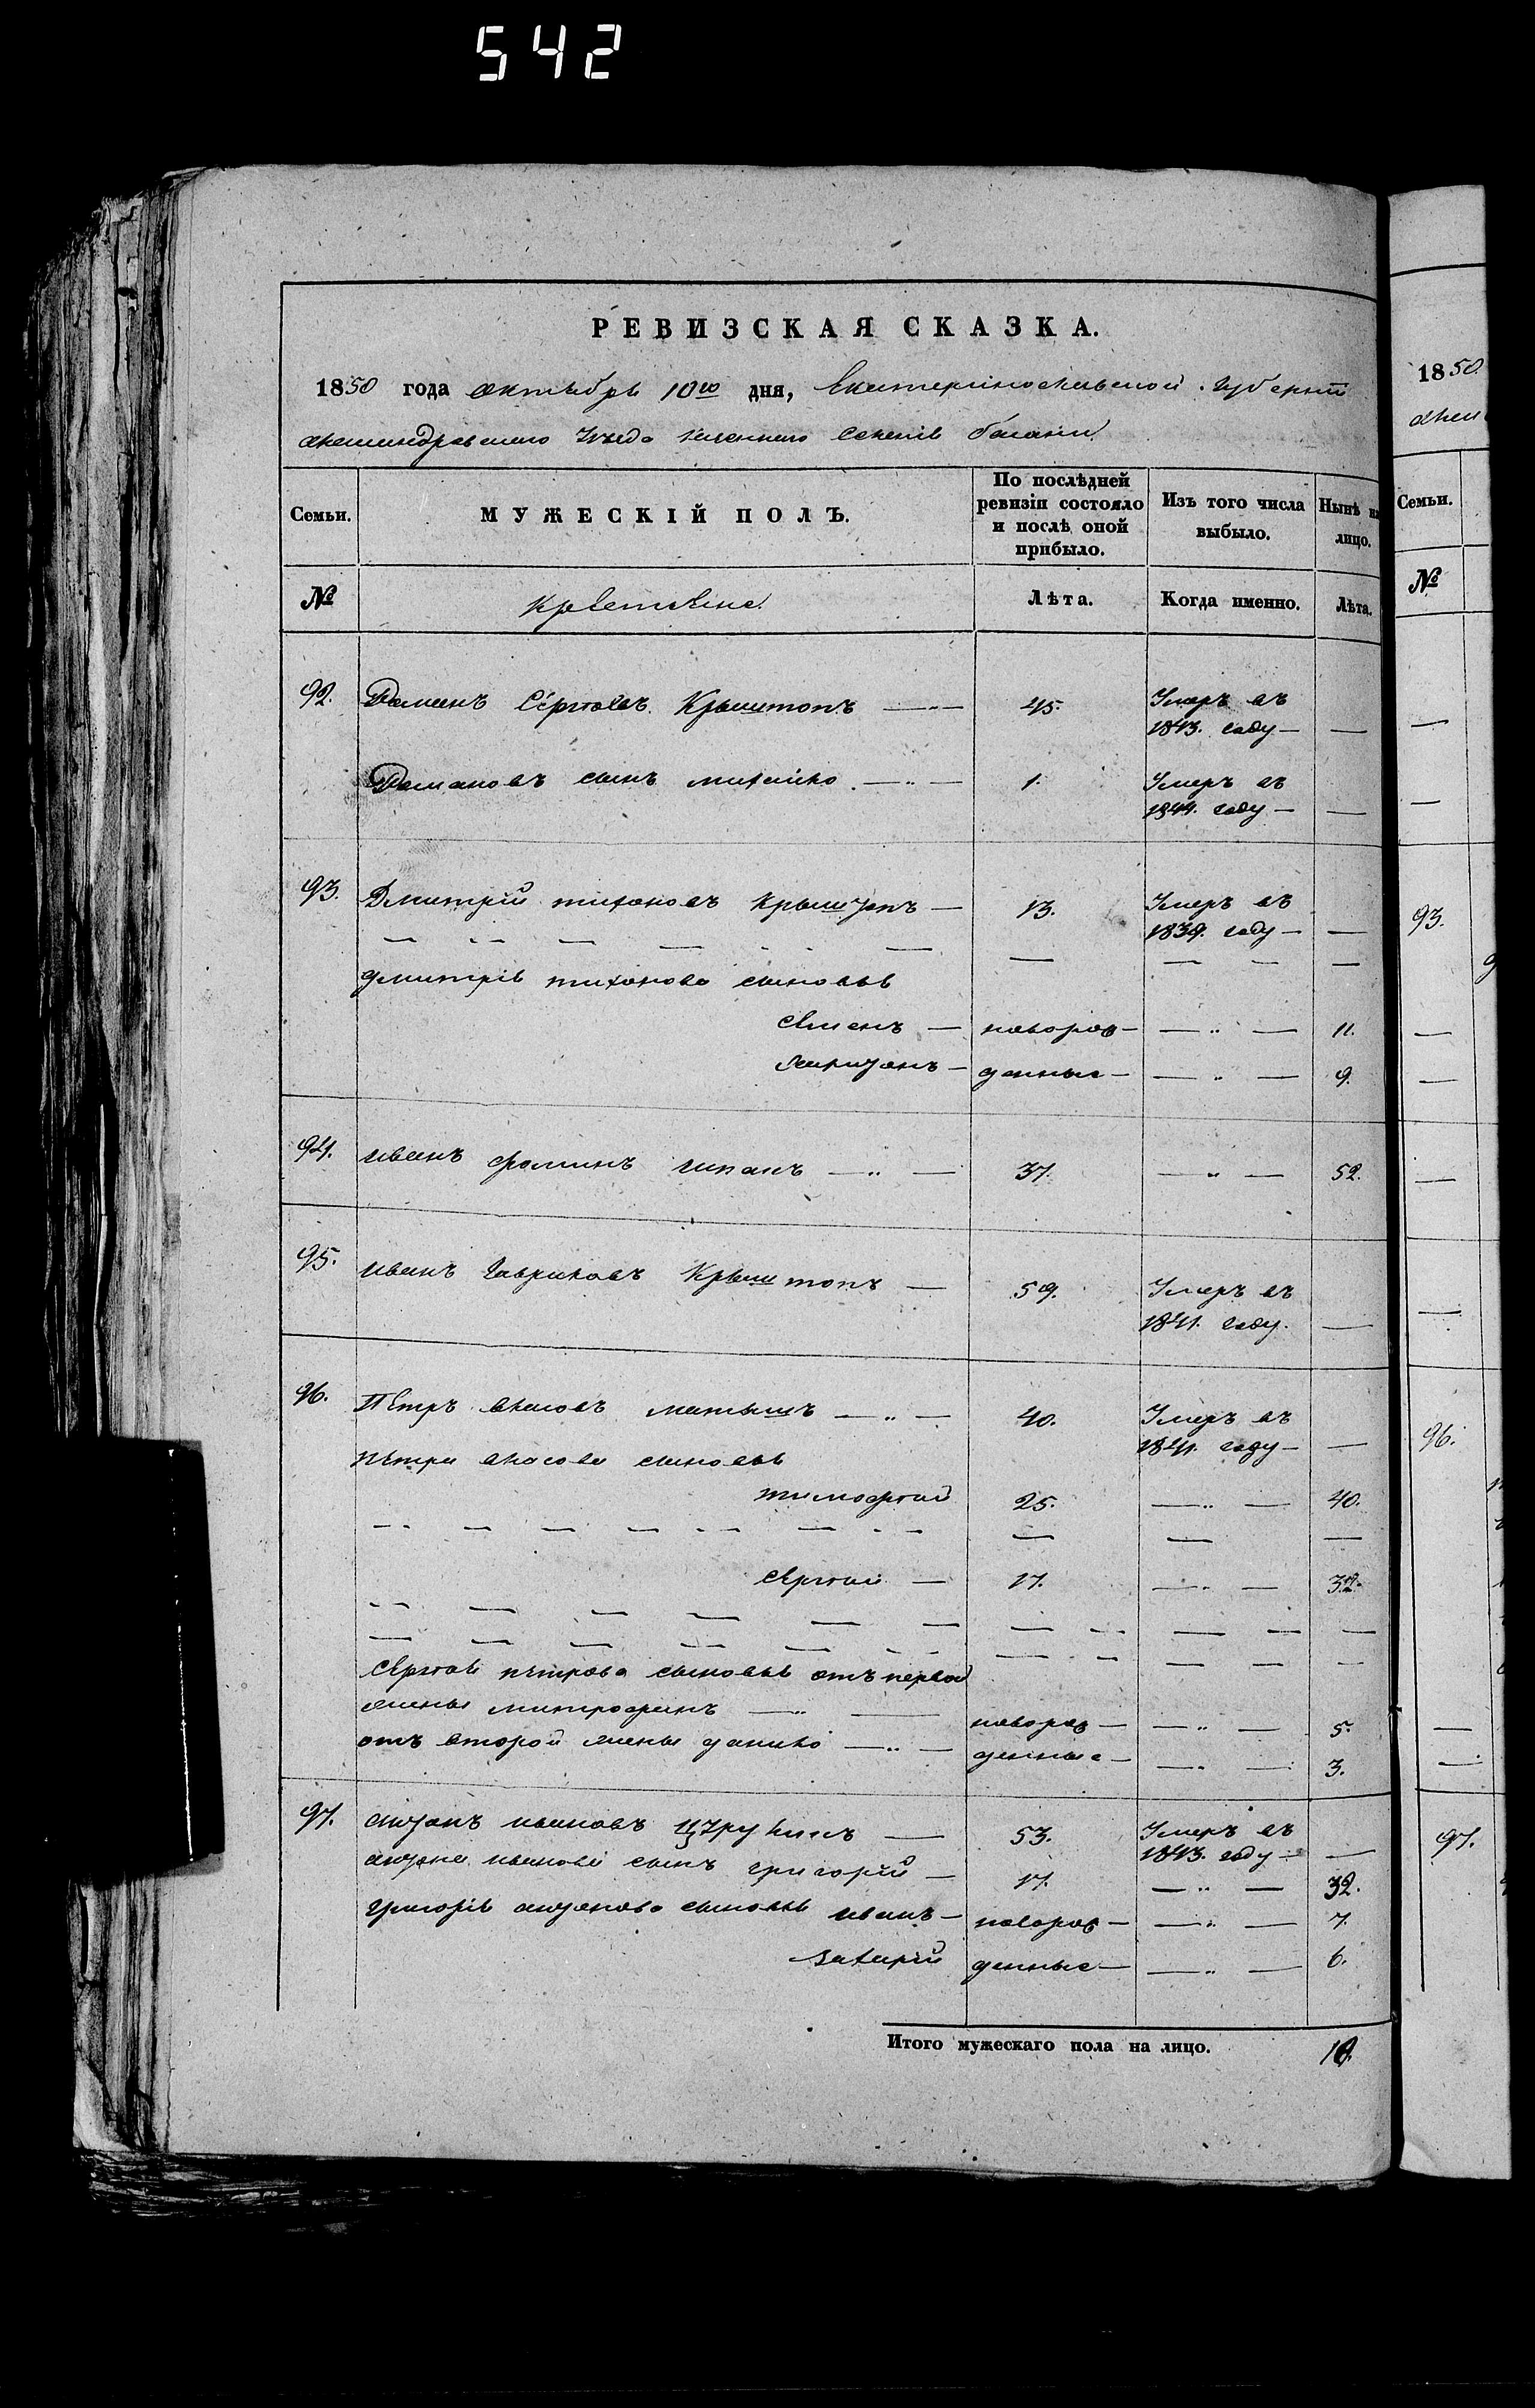 542
РЕВИЗСКАЯ СКАЗКА.
1850 года октября 10го дня, Екатеринославской губернiи
Александровскаго Уезда казеннаго Селенiя
Семьи.
МУЖЕСКIЙ ПОЛЪ.
По послѣдней ревизiи состояло и послѣ оной прибыло.
Изъ того числа выбыло.
Нынѣ на лицо.
№
Крестяне
Лѣта.
Когда именно.
Лѣта.
92. Романъ Сергѣевъ Крыштопъ — 45. Умеръ въ
1843. году — —
Романовъ сынъ михайло — 1. Умеръ въ
1844. году — —
93. Дмитрiй тихоновъ Крыштопъ — 13. Умеръ въ
1839. году — —
дмитрiя тихонова сыновья
семенъ — новорож — — 11.
харитонъ — денные — — 9.
94. иванъ фоминъ — 37. — 52.
95. иванъ гавриловъ Крыштопъ — 59. Умеръ въ
1841. году. —
96. Петръ власовъ матяшъ — 40. Умеръ въ
1841. году — —
петра власова сыновья
тимофей 25. — 40.
Сергѣй — 17. — 32.
Сергѣя петрова сыновья отъ первой
жены митрофанъ — новорож — — 5.
отъ второй жены данило — денные — — 3.
97. антонъ ивановъ — 53. Умеръ въ
1843. году — —
антона иванова сынъ григорiй — 17. — 32.
григорiя антонова сыновья иванъ — новорож — — 7.
захарiй денные — — 6.
Итого мужескаго пола на лицо. 10.
1850
Семьи.
№
93.
96.
97.